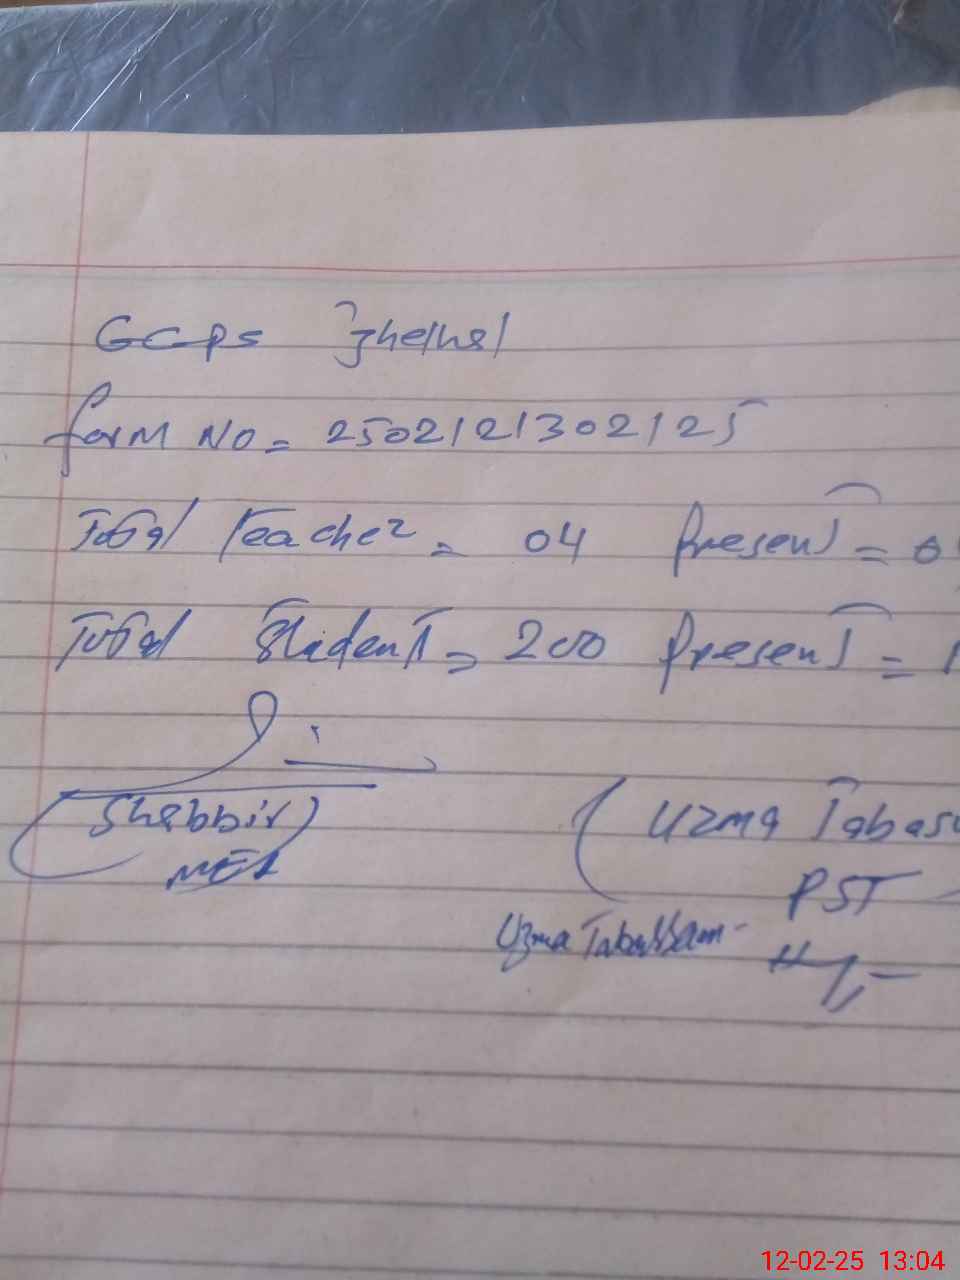 GCPS
form No = 2502121302125
Total Teacher = 04 Present = 0
Total Student = 200 Present = 1
(Shabbir)
(Uzma Tabas
PST
Uzma Tabassam
12-02-25 13:04